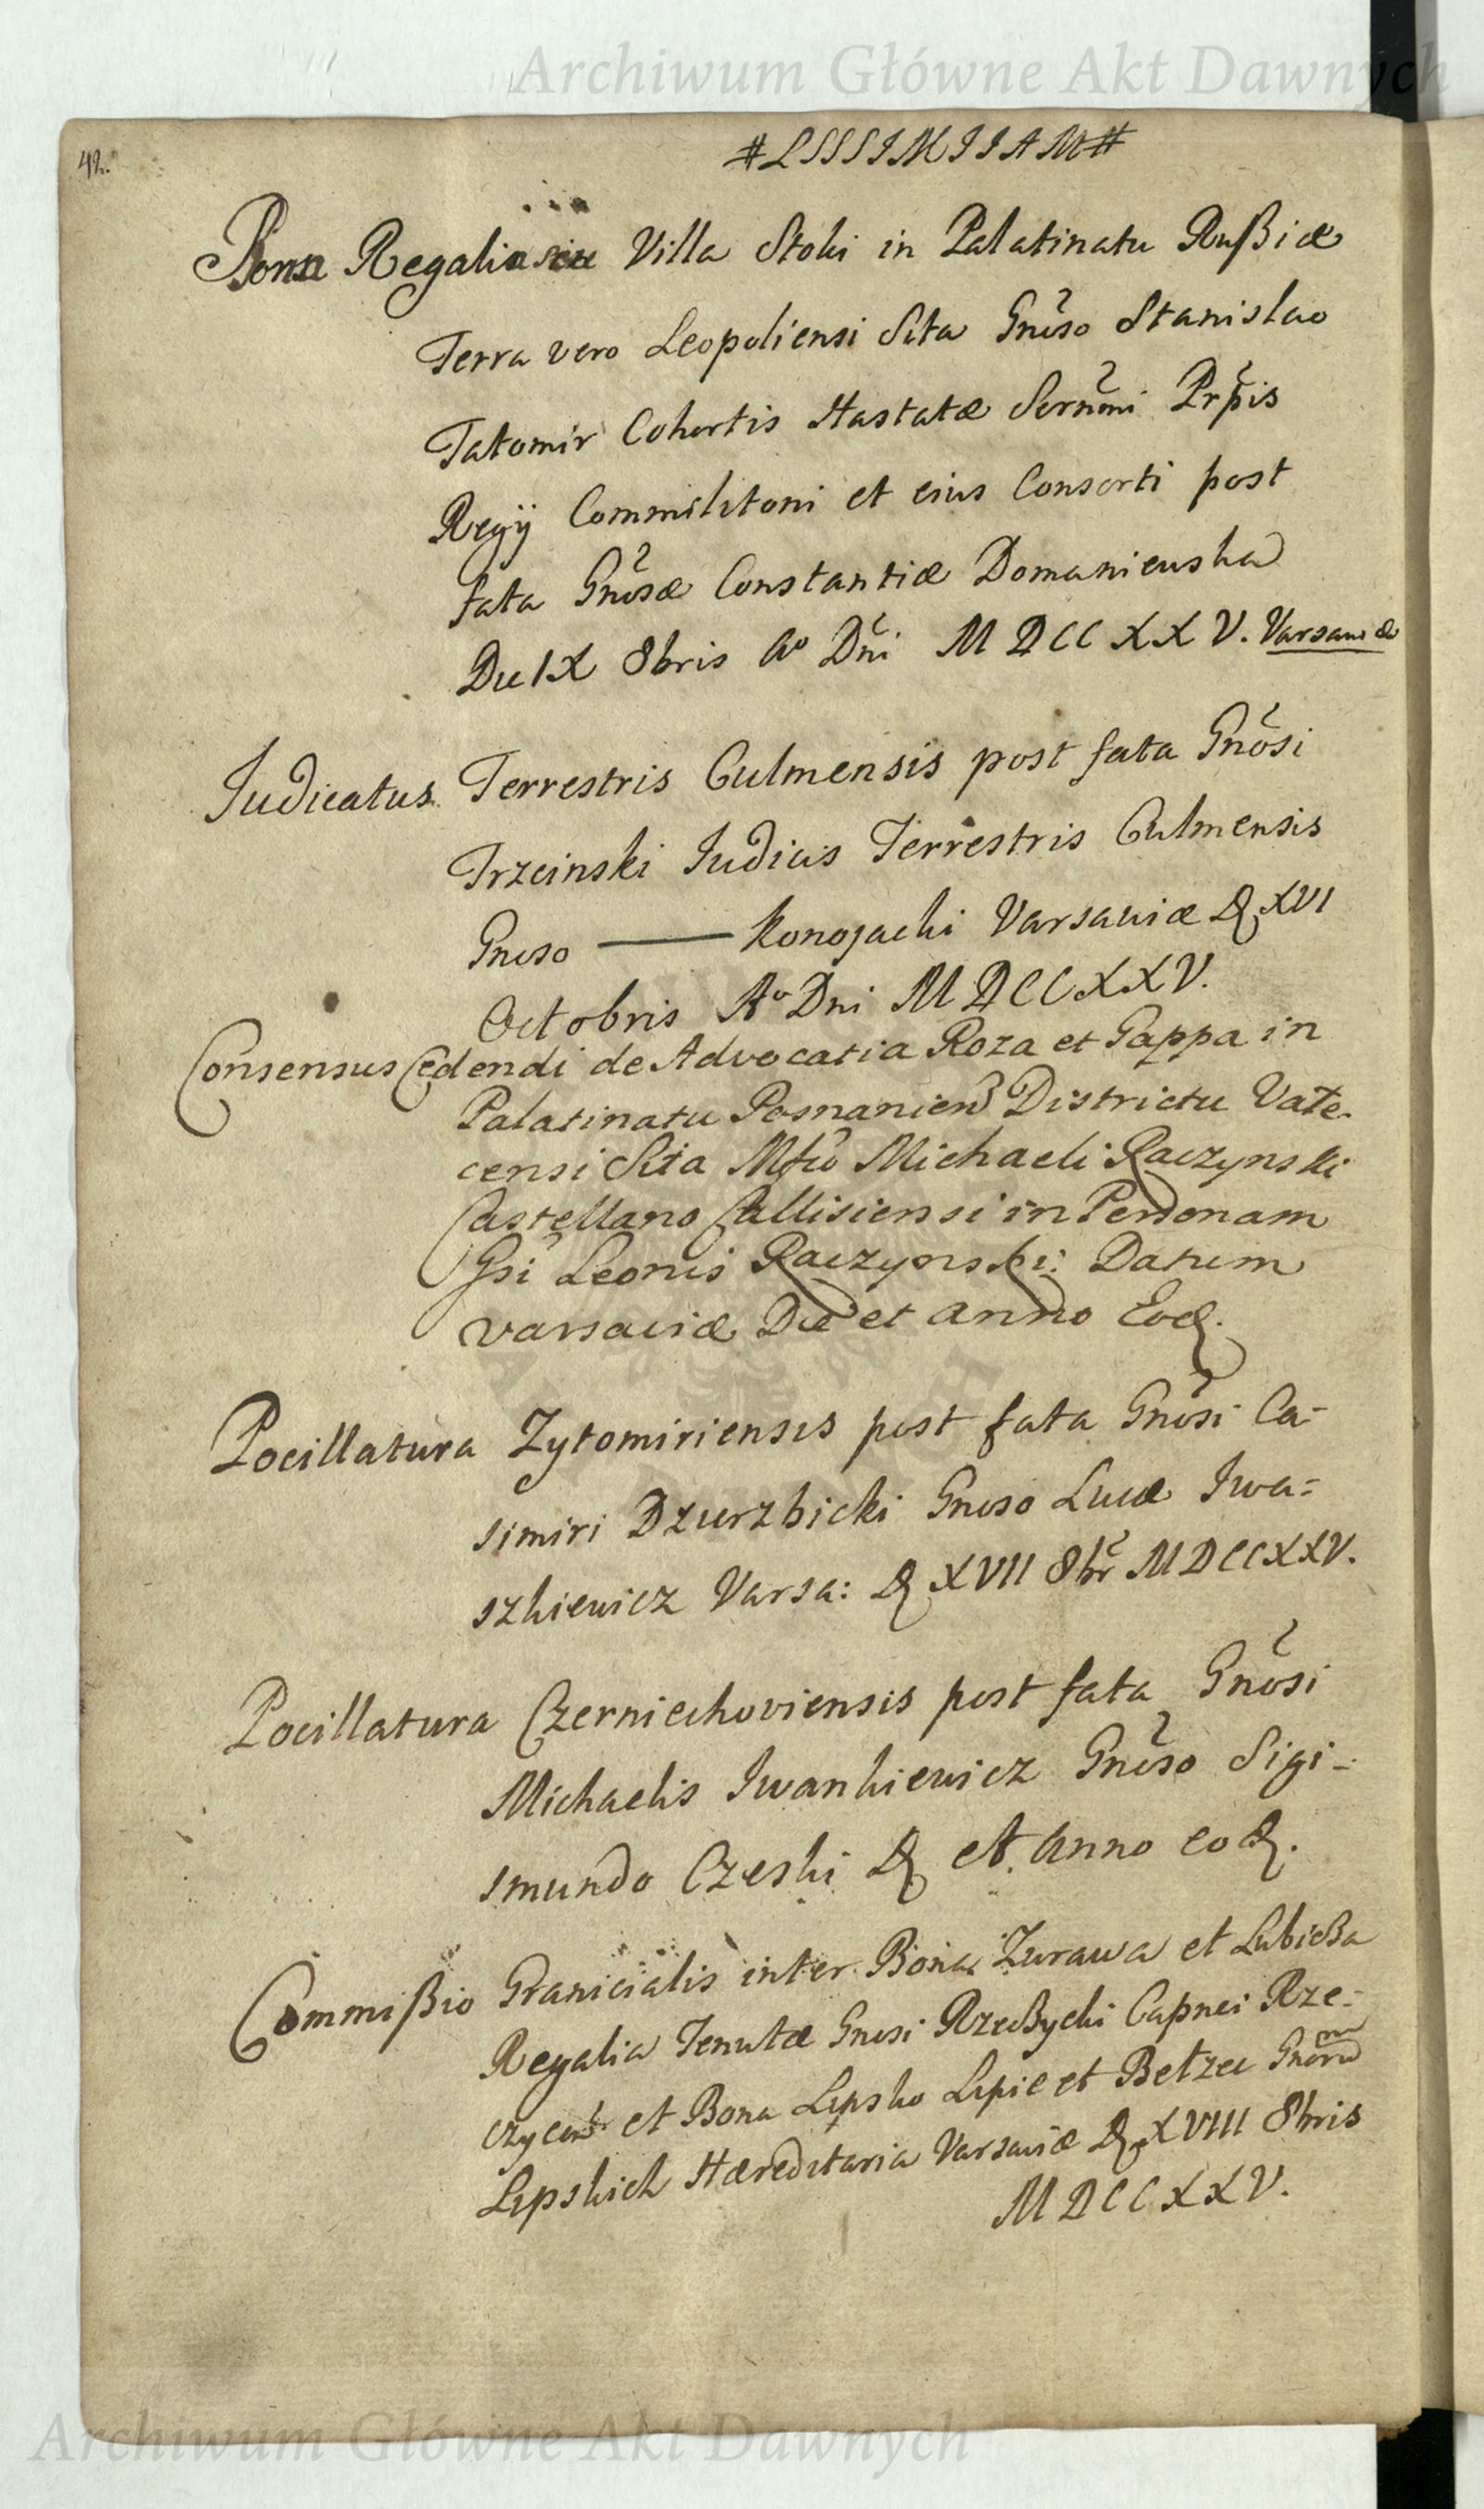 Archiwum Główne Akt Dawnych
42.
#LSSSIMIIAM#
Bona Regalia seu Villa Stoki in Palatinatu Rußiæ
Terra vero Leopoliensi Sita Gnoso Stanislao
Tatomir Cohortis Hastatæ Sernmi Prpis
Regij Commilitoni et eius Consorti post
fata Gnosæ Constantiæ Domaniewska
Die IX 8bris Ao Dni MDCCXXV. Varsaviæ
Judicatus Terrestris Culmensis post fata Gnosi
Trzcinski Judicis Terrestris Culmensis
Gnoso —— Konojacki Varsaviæ D XVI
Octobris Ao Dni MDCCXXV.
Consensus Cedendi de Advocatia Roza et Gappa in
Palatinatu Posnanien Districtu Vałe-
censi Sita Mfco Michaeli Raczynski
Castellano Callisiensi in Personam
Gsi Leonis Raczynski: Datum
Varsaviæ Die et anno Eod.
Pocillatura Zytomiriensis post fata Gnosi Ca-
simiri Dzurzbicki Gnoso Lucæ Iwa=
szkiewicz Varsa: D XVII 8br MDCCXXV.
Pocillatura Czerniechoviensis post fata Gnosi
Michaelis Iwankiewicz Gnoso Sigi-
smundo Czeski D et Anno eod.
Commißio Granicialis inter Bona Zurawa et Lubicßa
Regalia Tenutæ Gnosi Rzeczycki Capnei Rze-
czycen et Bona Lipsko Lipie et Betzec Gnoru
Lipskich Hæreditaria Varsaviæ D XVIII 8bris
MDCCXXV.
Archiwum Główne Akt Dawnych